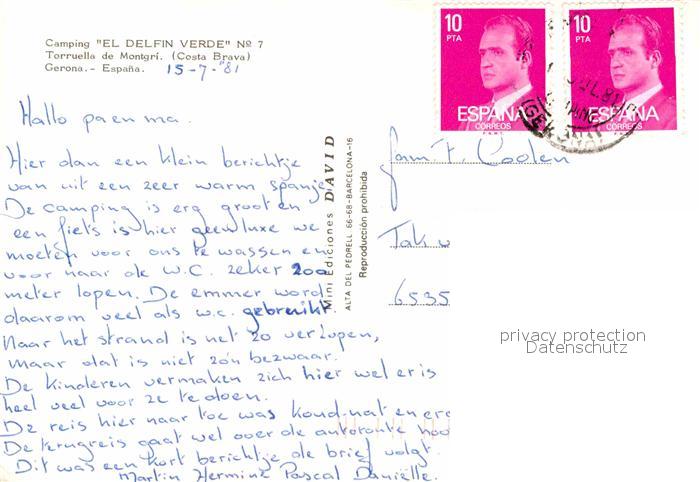 Camping "EL DELFIN VERDE" Nº 7
Torruella de Montgrí. (Costa Brava)
Gerona.- España. 15-7-'81
10 PTA
ESPAÑA
CORREOS
10 PTA
ESPAÑA
CORREOS
Hallo pa en ma.
Hier dan een klein berichtje
van uit een zeer warm spanje
De camping is erg groot en
een fiets is hier geen luxe we
moeten voor ons te wassen en
voor naar de W.C. zeker 200
meter lopen. De emmer word
daarom veel als w.c. gebruikt.
Naar het strand is net zo ver lopen,
maar dat is niet zo'n bezwaar.
De kinderen vermaken zich hier wel er is
heel veel voor ze te doen.
De reis hier naar toe was koud-nat en
De terugreis gaat wel over de autoroute
Dit was een kort berichtje de brief volgt.
Martin Hermine Pascal Daniëlle.
Mini Ediciones DAVID
ALTA DEL PEDRELL 66-68-BARCELONA-16
Reproducción prohibida
Fam. F. Coolen
6535
privacy protection
Datenschutz